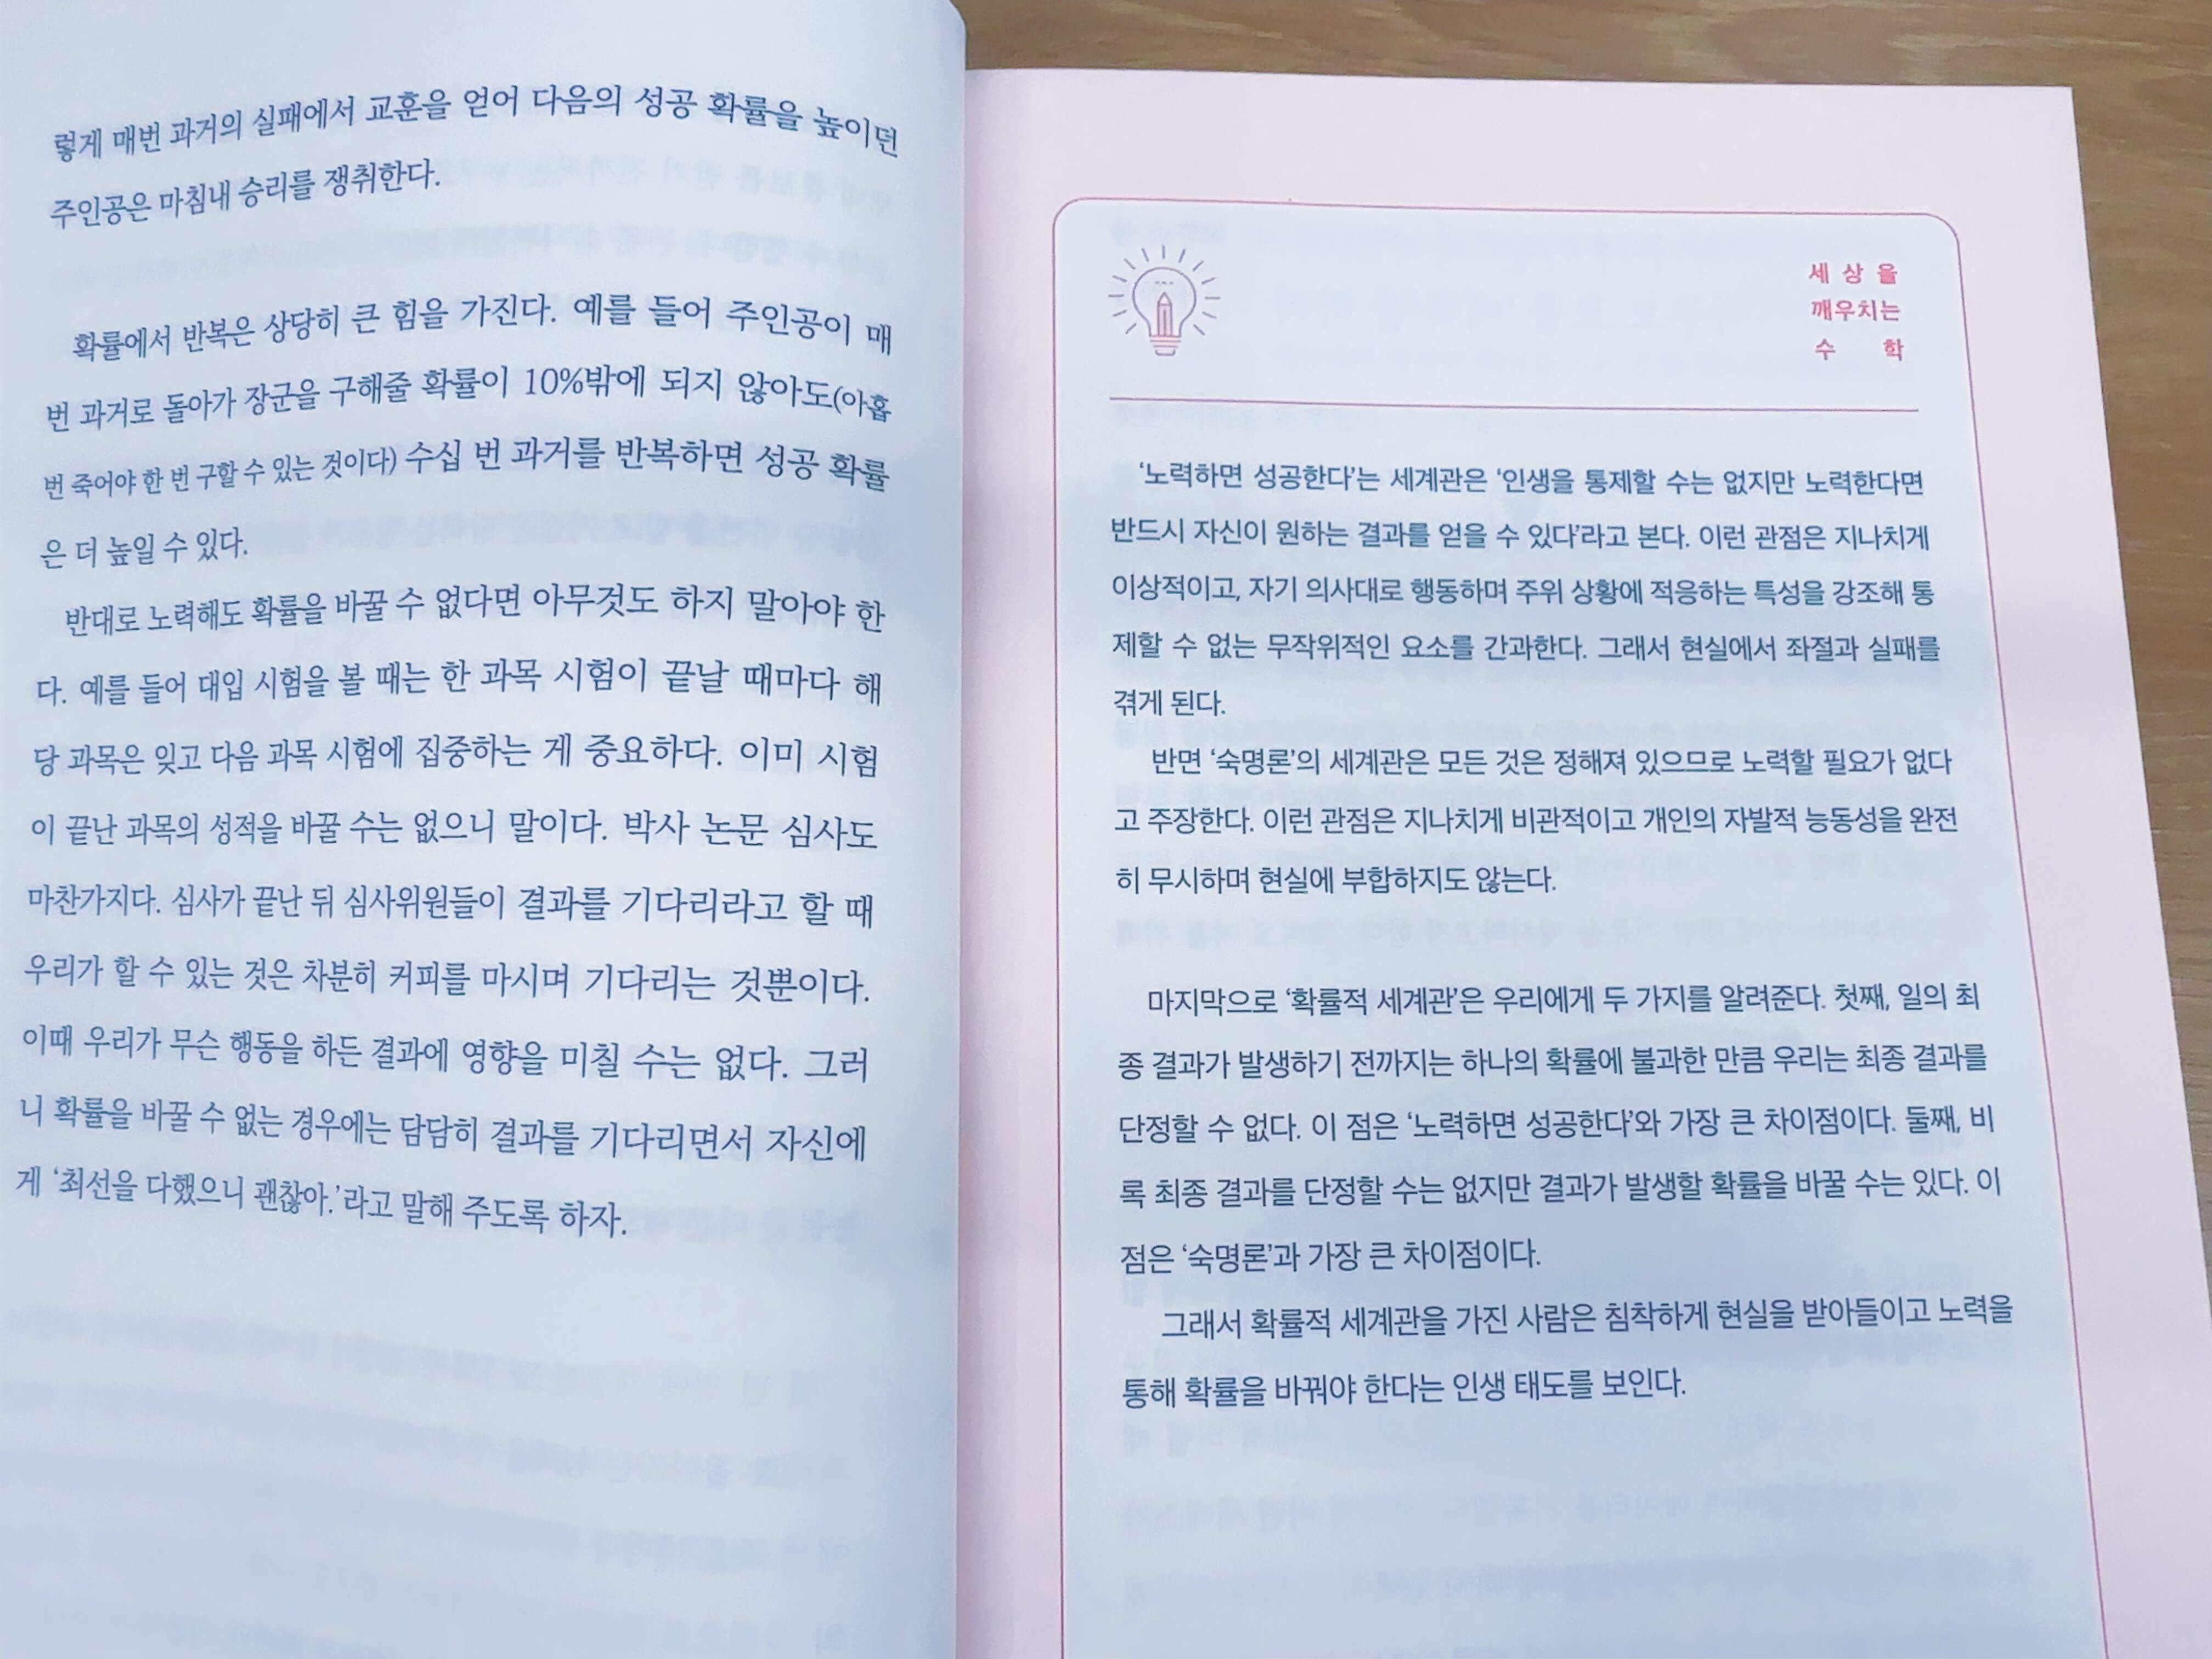 렇게 매번 과거의 실패에서 교훈을 얻어 다음의 성공 확률을 높이던
주인공은 마침내 승리를 쟁취한다.
확률에서 반복은 상당히 큰 힘을 가진다. 예를 들어 주인공이 매
번 과거로 돌아가 장군을 구해줄 확률이 10%밖에 되지 않아도(아홉
번 죽어야 한 번 구할 수 있는 것이다) 수십 번 과거를 반복하면 성공 확률
은 더 높일 수 있다.
반대로 노력해도 확률을 바꿀 수 없다면 아무것도 하지 말아야 한
다. 예를 들어 대입 시험을 볼 때는 한 과목 시험이 끝날 때마다 해
당 과목은 잊고 다음 과목 시험에 집중하는 게 중요하다. 이미 시험
이 끝난 과목의 성적을 바꿀 수는 없으니 말이다. 박사 논문 심사도
마찬가지다. 심사가 끝난 뒤 심사위원들이 결과를 기다리라고 할 때
우리가 할 수 있는 것은 차분히 커피를 마시며 기다리는 것뿐이다.
이때 우리가 무슨 행동을 하든 결과에 영향을 미칠 수는 없다. 그러
니 확률을 바꿀 수 없는 경우에는 담담히 결과를 기다리면서 자신에
게 ‘최선을 다했으니 괜찮아.’라고 말해 주도록 하자.
세상을
깨우치는
수학
‘노력하면 성공한다’는 세계관은 ‘인생을 통제할 수는 없지만 노력한다면
반드시 자신이 원하는 결과를 얻을 수 있다’라고 본다. 이런 관점은 지나치게
이상적이고, 자기 의사대로 행동하며 주위 상황에 적응하는 특성을 강조해 통
제할 수 없는 무작위적인 요소를 간과한다. 그래서 현실에서 좌절과 실패를
겪게 된다.
반면 ‘숙명론’의 세계관은 모든 것은 정해져 있으므로 노력할 필요가 없다
고 주장한다. 이런 관점은 지나치게 비관적이고 개인의 자발적 능동성을 완전
히 무시하며 현실에 부합하지도 않는다.
마지막으로 ‘확률적 세계관’은 우리에게 두 가지를 알려준다. 첫째, 일의 최
종 결과가 발생하기 전까지는 하나의 확률에 불과한 만큼 우리는 최종 결과를
단정할 수 없다. 이 점은 ‘노력하면 성공한다’와 가장 큰 차이점이다. 둘째, 비
록 최종 결과를 단정할 수는 없지만 결과가 발생할 확률을 바꿀 수는 있다. 이
점은 ‘숙명론’과 가장 큰 차이점이다.
그래서 확률적 세계관을 가진 사람은 침착하게 현실을 받아들이고 노력을
통해 확률을 바꿔야 한다는 인생 태도를 보인다.